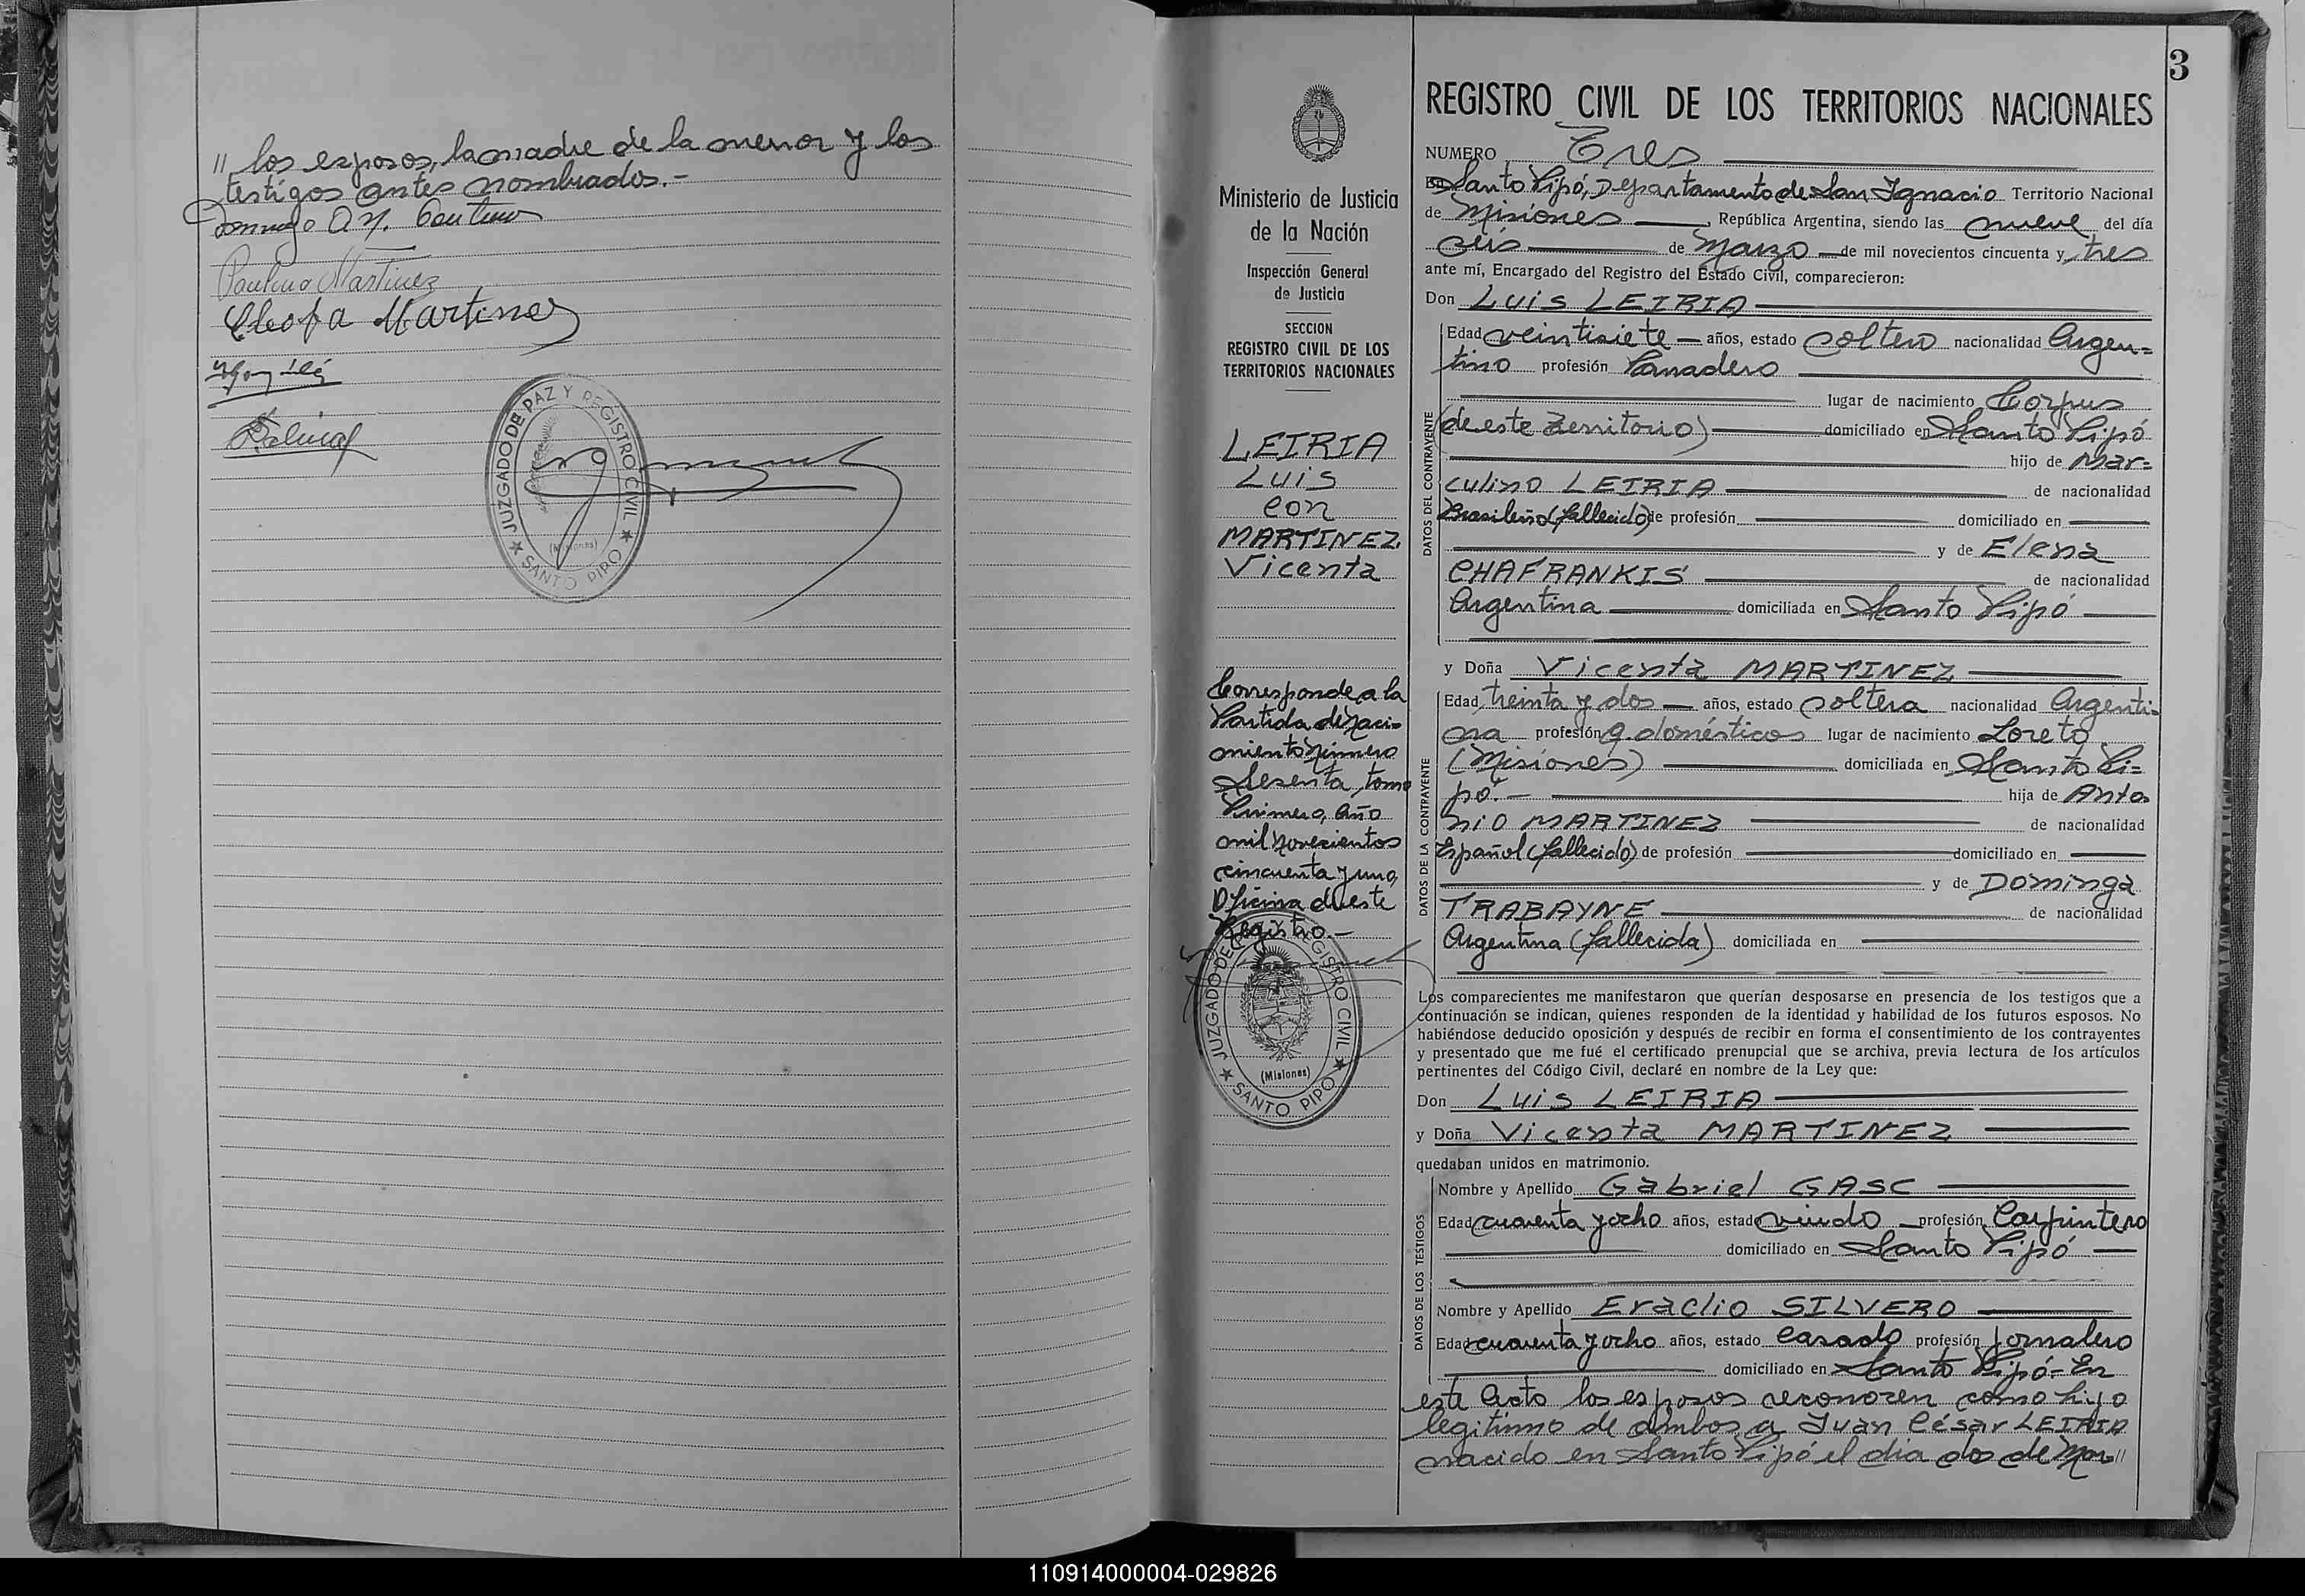 " los esposos, la madre de la menor y los
testigos antes nombrados.-
Paulina Martinez
Cleofa Martinez
JUZGADO DE PAZ Y REGISTRO CIVIL
(Misiones)
★ SANTO PIPO ★
3
Ministerio de Justicia
de la Nación
Inspección General
de Justicia
SECCION
REGISTRO CIVIL DE LOS
TERRITORIOS NACIONALES
LEIRIA
Luis
con
MARTINEZ
Vicenta
Corresponde a la
Partida de Naci-
miento Número
Sesenta, tomo
Primero, Año
mil novecientos
cincuenta y uno,
Oficina de este
Registro.-
JUZGADO DE REGISTRO CIVIL
(Misiones)
★ SANTO PIPO ★
REGISTRO CIVIL DE LOS TERRITORIOS NACIONALES
NUMERO Tres
En Santo Pipó, Departamento de San Ignacio Territorio Nacional
de Misiones, República Argentina, siendo las nueve del día
seis de Marzo de mil novecientos cincuenta y tres
ante mí, Encargado del Registro del Estado Civil, comparecieron:
Don Luis LEIRIA
DATOS DEL CONTRAYENTE
Edad veintisiete años, estado soltero nacionalidad Argen=
tino profesión Panadero
lugar de nacimiento Corpus
(de este Territorio) domiciliado en Santo Pipó
hijo de Mar=
culino LEIRIA de nacionalidad
Brasileño (fallecido) de profesión domiciliado en
y de Elena
CHAFRANKIS de nacionalidad
Argentina domiciliada en Santo Pipó
y Doña Vicenta MARTINEZ
DATOS DE LA CONTRAYENTE
Edad treinta y dos años, estado soltera nacionalidad Argenti-
na profesión q. domésticos lugar de nacimiento Loreto
(Misiones) domiciliada en Santo Pi=
pó.- hija de Anto-
nio MARTINEZ de nacionalidad
Español (fallecido) de profesión domiciliado en
y de Dominga
TRABAYNE de nacionalidad
Argentina (fallecida) domiciliada en
Los comparecientes me manifestaron que querían desposarse en presencia de los testigos que a
continuación se indican, quienes responden de la identidad y habilidad de los futuros esposos. No
habiéndose deducido oposición y después de recibir en forma el consentimiento de los contrayentes
y presentado que me fué el certificado prenupcial que se archiva, previa lectura de los artículos
pertinentes del Código Civil, declaré en nombre de la Ley que:
Don Luis LEIRIA
y Doña Vicenta MARTINEZ
quedaban unidos en matrimonio.
DATOS DE LOS TESTIGOS
Nombre y Apellido Gabriel GASC
Edad cuarenta y ocho años, estado viudo profesión Carpintero
domiciliado en Santo Pipó
Nombre y Apellido Eraclio SILVERO
Edad cuarenta y ocho años, estado casado profesión Jornalero
domiciliado en Santo Pipó.- En
este Acto los esposos reconocen como hijo
legitimo de ambos a Juan César LEIRIA
nacido en Santo Pipó el dia dos de Mar"
110914000004-029826